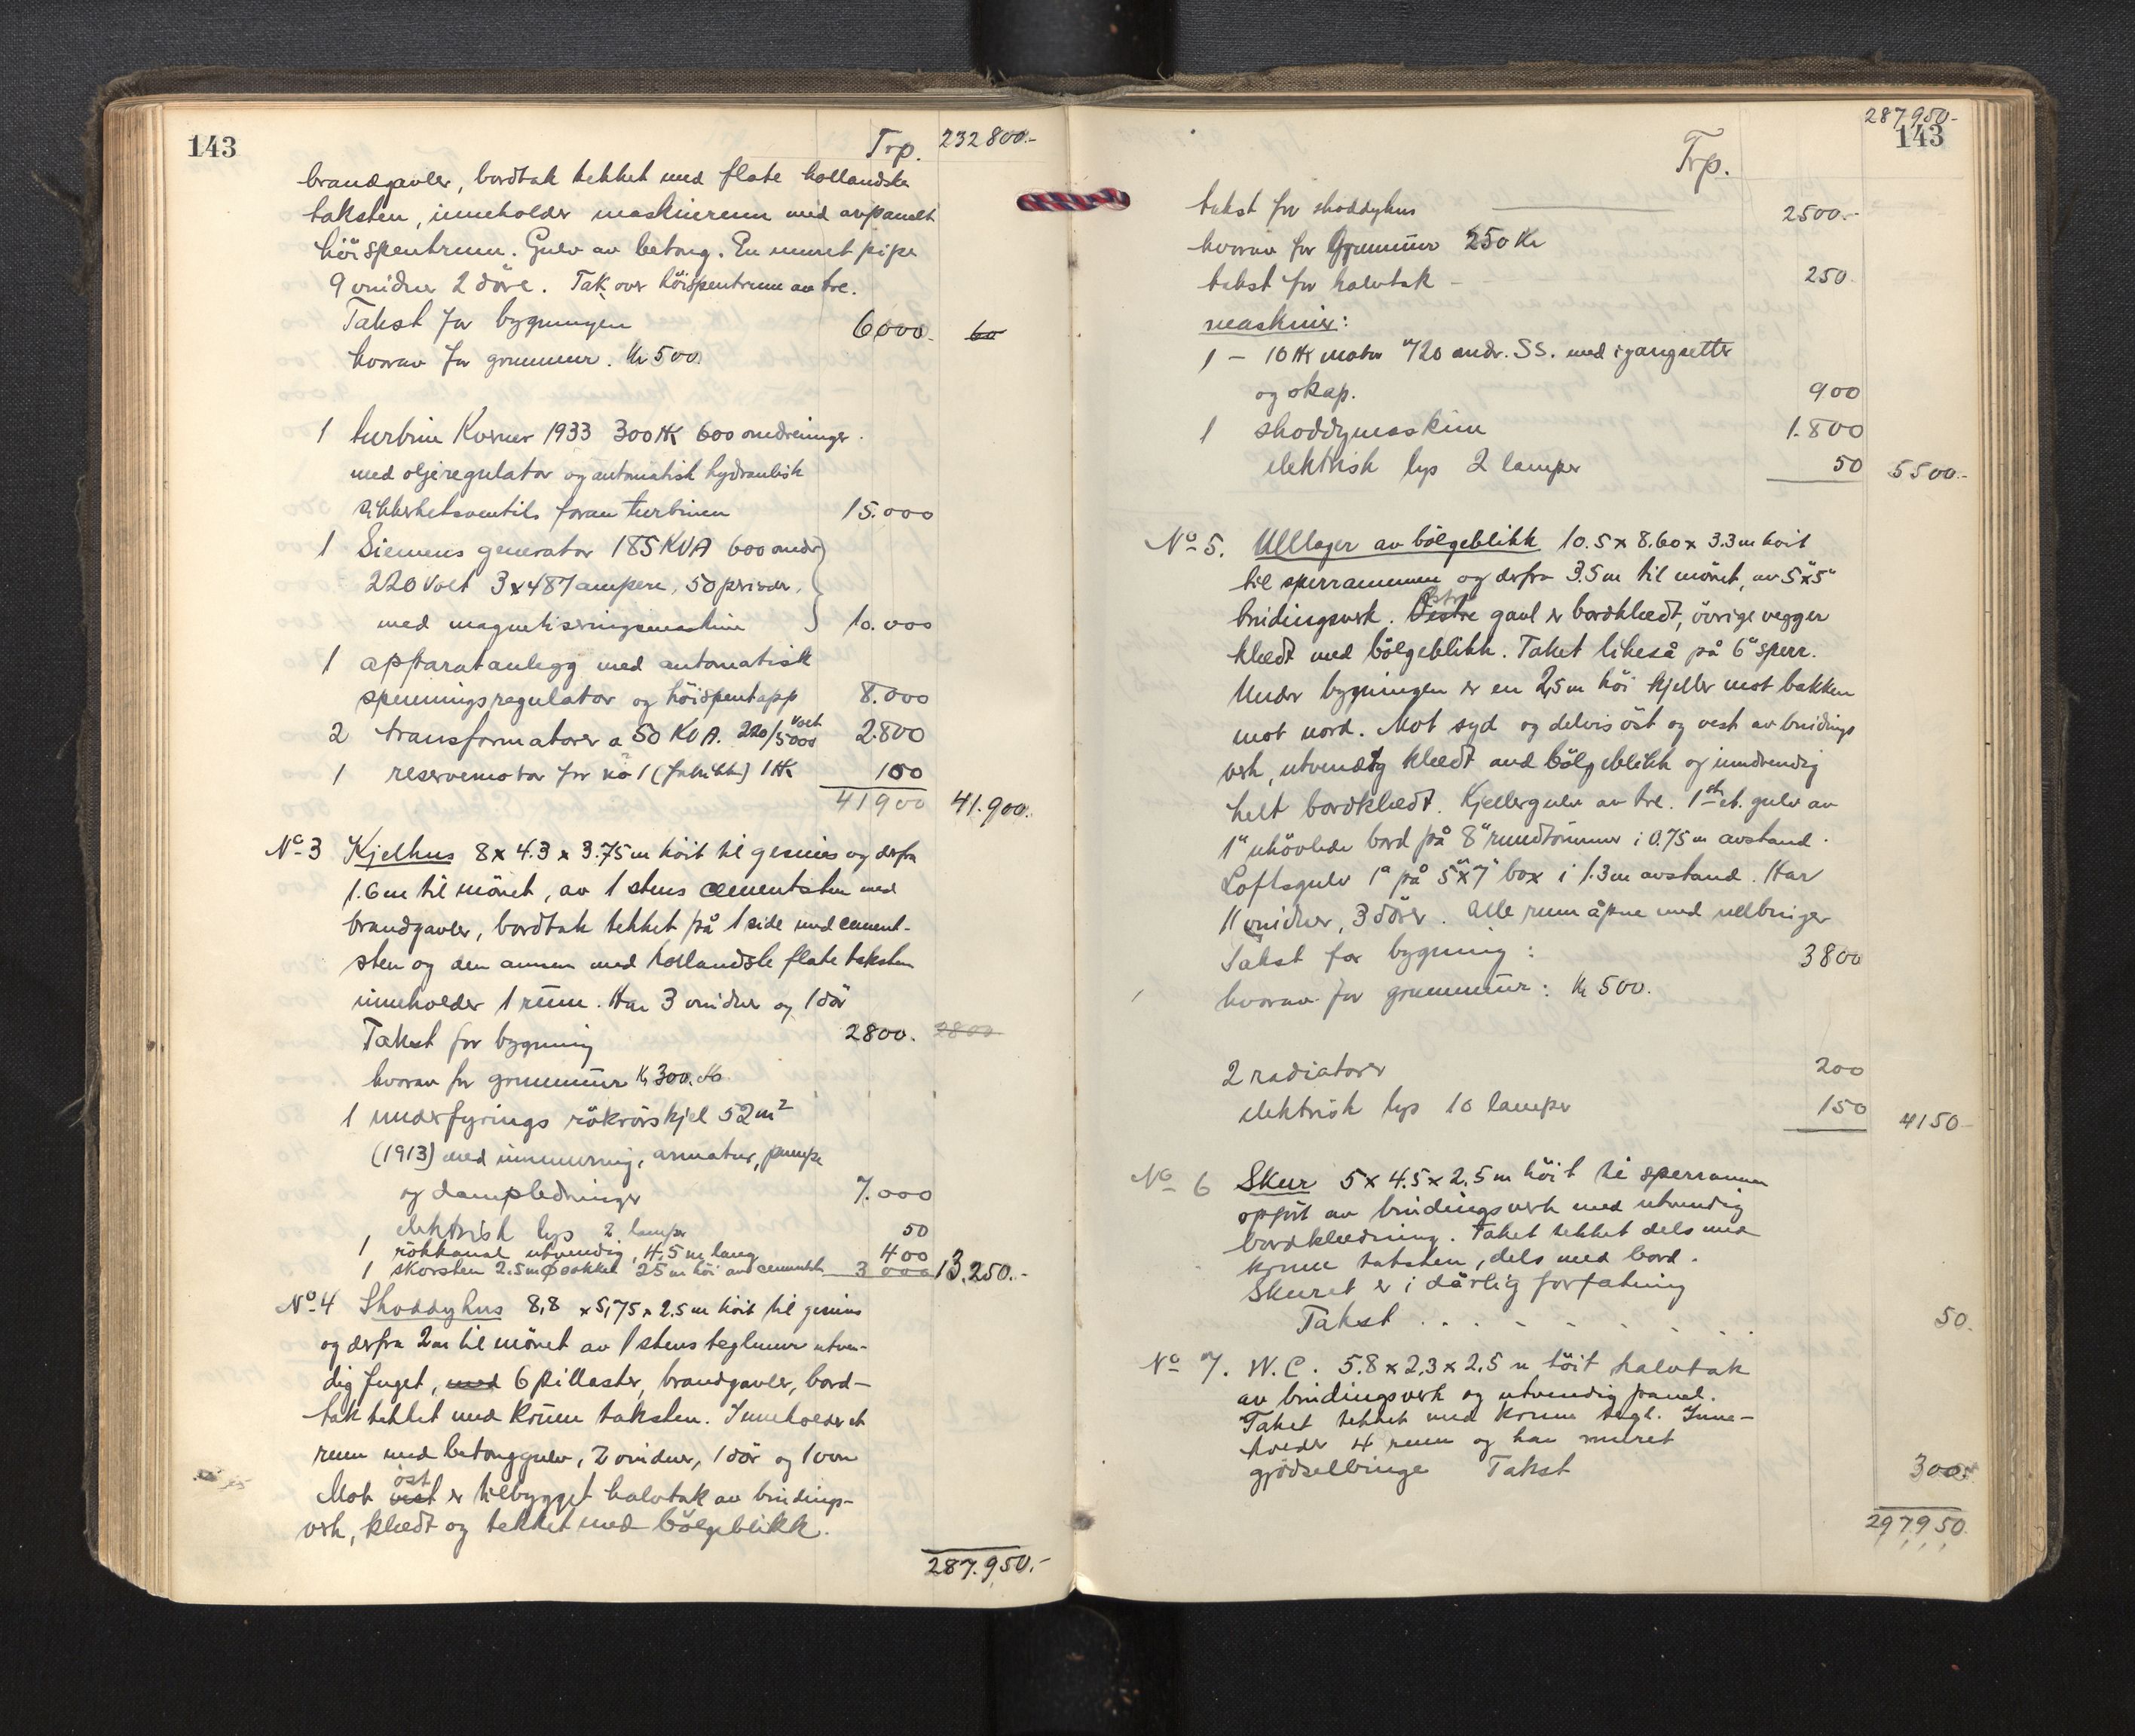 143
Trp. 232800.-
brandgavler, bordtak tekket med flate hollandske
taksten, inneholder maskinrum med avpanelt
höispentrum. Gulv av betong. En muret pipe
9 vinduer 2 döre. Tak over höispentrum av tre.
Takst for bygningen 6000.- 60
hvorav for grunnmur. Kr 500.
1 turbin Kværner 1933 300 HK 600 omdreininger.
med oljeregulator og automatisk hydraulisk
sikkerhetsventil foran turbinen 15.000
1 Siemens generator 185 KVA 600 omdr
220 Volt 3x487 ampere, 50 perioder,
med magnetiseringsmaskine 10.000
1 apparatanlegg med automatisk
spenningsregulator og höispentapp 8.000
2 transformatorer a 50 KVA. 220/5000 volt 2.800
1 reservemotor for no 1 (fabrikk) 1 HK 100
41900 41.900.-
No 3 Kjelhus 8 x 4.3 x 3.75 m höit til gesims og derfra
1.6 m til mönet, av 1 stens cementsten med
brandgavler, bordtak tekket på 1 side med cement-
sten og den annen med hollandske flate taksten
inneholder 1 rum. Har 3 vinduer og 1 dör
Takst for bygning 2800. 2800.
hvorav for grunnmur Kr 300.
1 underfyrings rökrörskjel 52 m2
(1913) med innmuring, armatur, pumpe
og dampledninger 7.000
elektrisk lys 2 lamper 50
1 rökkanal utvendig, 4,5 m lang 400
1 skorsten 2.5 m sokkel 25 m höi av cementst. 3000 13.250.-
No 4 Shoddyhus 8,8 x 5,75 x 2.5 m höit til gesims
og derfra 2 m til mönet av 1 stens teglmur utven-
dig fuget, med 6 pillaster, brandgavler, bord-
tak tekket med krum taksten. Inneholder et
rum med betonggulv, 2 vinduer, 1 dör og 1 ovn
öst
Mot vest er tilbygget halvtak av bindings-
verk, klædt og tekket med bölgeblikk.
287.950.-
287950-
143
Trp.
takst for shoddyhus 2500.-
hvorav for Grunmur 250 Kr
takst for halvtak - 250.
maskiner:
1 - 10 HK motor 720 omdr. SS. med igangsetter
og skap. 900
1 shoddymaskin 1.800
elektrisk lys 2 lamper 50 5500.-
No 5. Ulllager av bölgeblikk 10.5 x 8.60 x 3.3 m höit
til sperrammen og derfra 3.5 m til mönet, av 5"x5"
Östre
bindingsverk. Vestre gavl er bordklædt, övrige vegger
klædt med bölgeblikk. Taket likeså på 6" sperr.
Under bygningen er en 2,5 m höi kjeller mot bakken
mot nord. Mot syd og delvis öst og vest av bindings
verk, utvendig klædt med bölgeblikk og innvendig
helt bordklædt. Kjellergulv av tre. 1ste et. gulv av
1" uhövlede bord på 8" rundtömmer i 0.75 m avstand.
Loftsgulv 1" på 5"x7" box i 1.3 m avstand. Har
11 vinduer, 3 dörer. Alle rum åpne med ullbinger
Takst for bygning: 3800
hvorav for grunnmur: Kr 500.
2 radiatorer 200
elektrisk lys 10 lamper 150 4150-
No 6 Skur 5 x 4.5 x 2.5 m höit til sperrammen
opfört av bindingsverk med utvendig
bordklædning. Taket tekket dels med
krum taksten, dels med bord.
Skuret er i dårlig forfatning
Takst . . . . . . . 50.
No 7. W.C. 5.8 x 2.3 x 2.5 m höit halvtak
av bindingsverk og utvendig panel.
Taket tekket med krum tegl. Inne-
holder 4 rum og har muret
gjödselbinge Takst 300.-
297950.